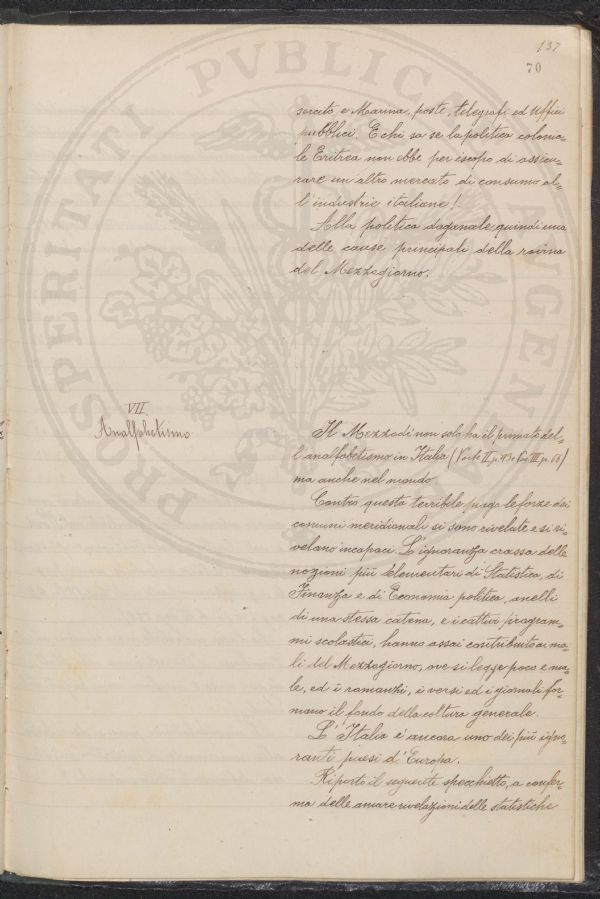 137
70
sercito e Marina, poste, telegrafi ed Uffici
pubblici. E chi sa se la politica colonia=
le Eritrea non ebbe per iscopo di assicu=
rare un altro mercato di consumo al=
l'industrie italiane!
Alla politica doganale quindi una
delle cause principali della rovina
del Mezzogiorno.
VII.
Analfabetismo
Il Mezzodì non solo ha il primato del=
l'analfabetismo in Italia (Parte II p. 43 e Par. III p. 68)
ma anche nel mondo.
Contro questa terribile piaga le forze dei
comuni meridionali si sono rivelate e si ri=
velano incapaci. L'ignoranza crassa delle
nozioni più elementari di Statistica, di
Finanza e di Economia politica, anelli
di una stessa catena, e i cattivi program=
mi scolastici, hanno assai contribuito ai ma=
li del Mezzogiorno, ove si legge poco e ma=
le, ed i romanzi, i versi ed i giornali for=
mano il fondo della coltura generale.
L'Italia è ancora uno dei più igno=
ranti paesi d'Europa.
Riporto il seguente specchietto, a confer=
ma delle amare rivelazioni delle statistiche
PROSPERITATI PVBLICAE